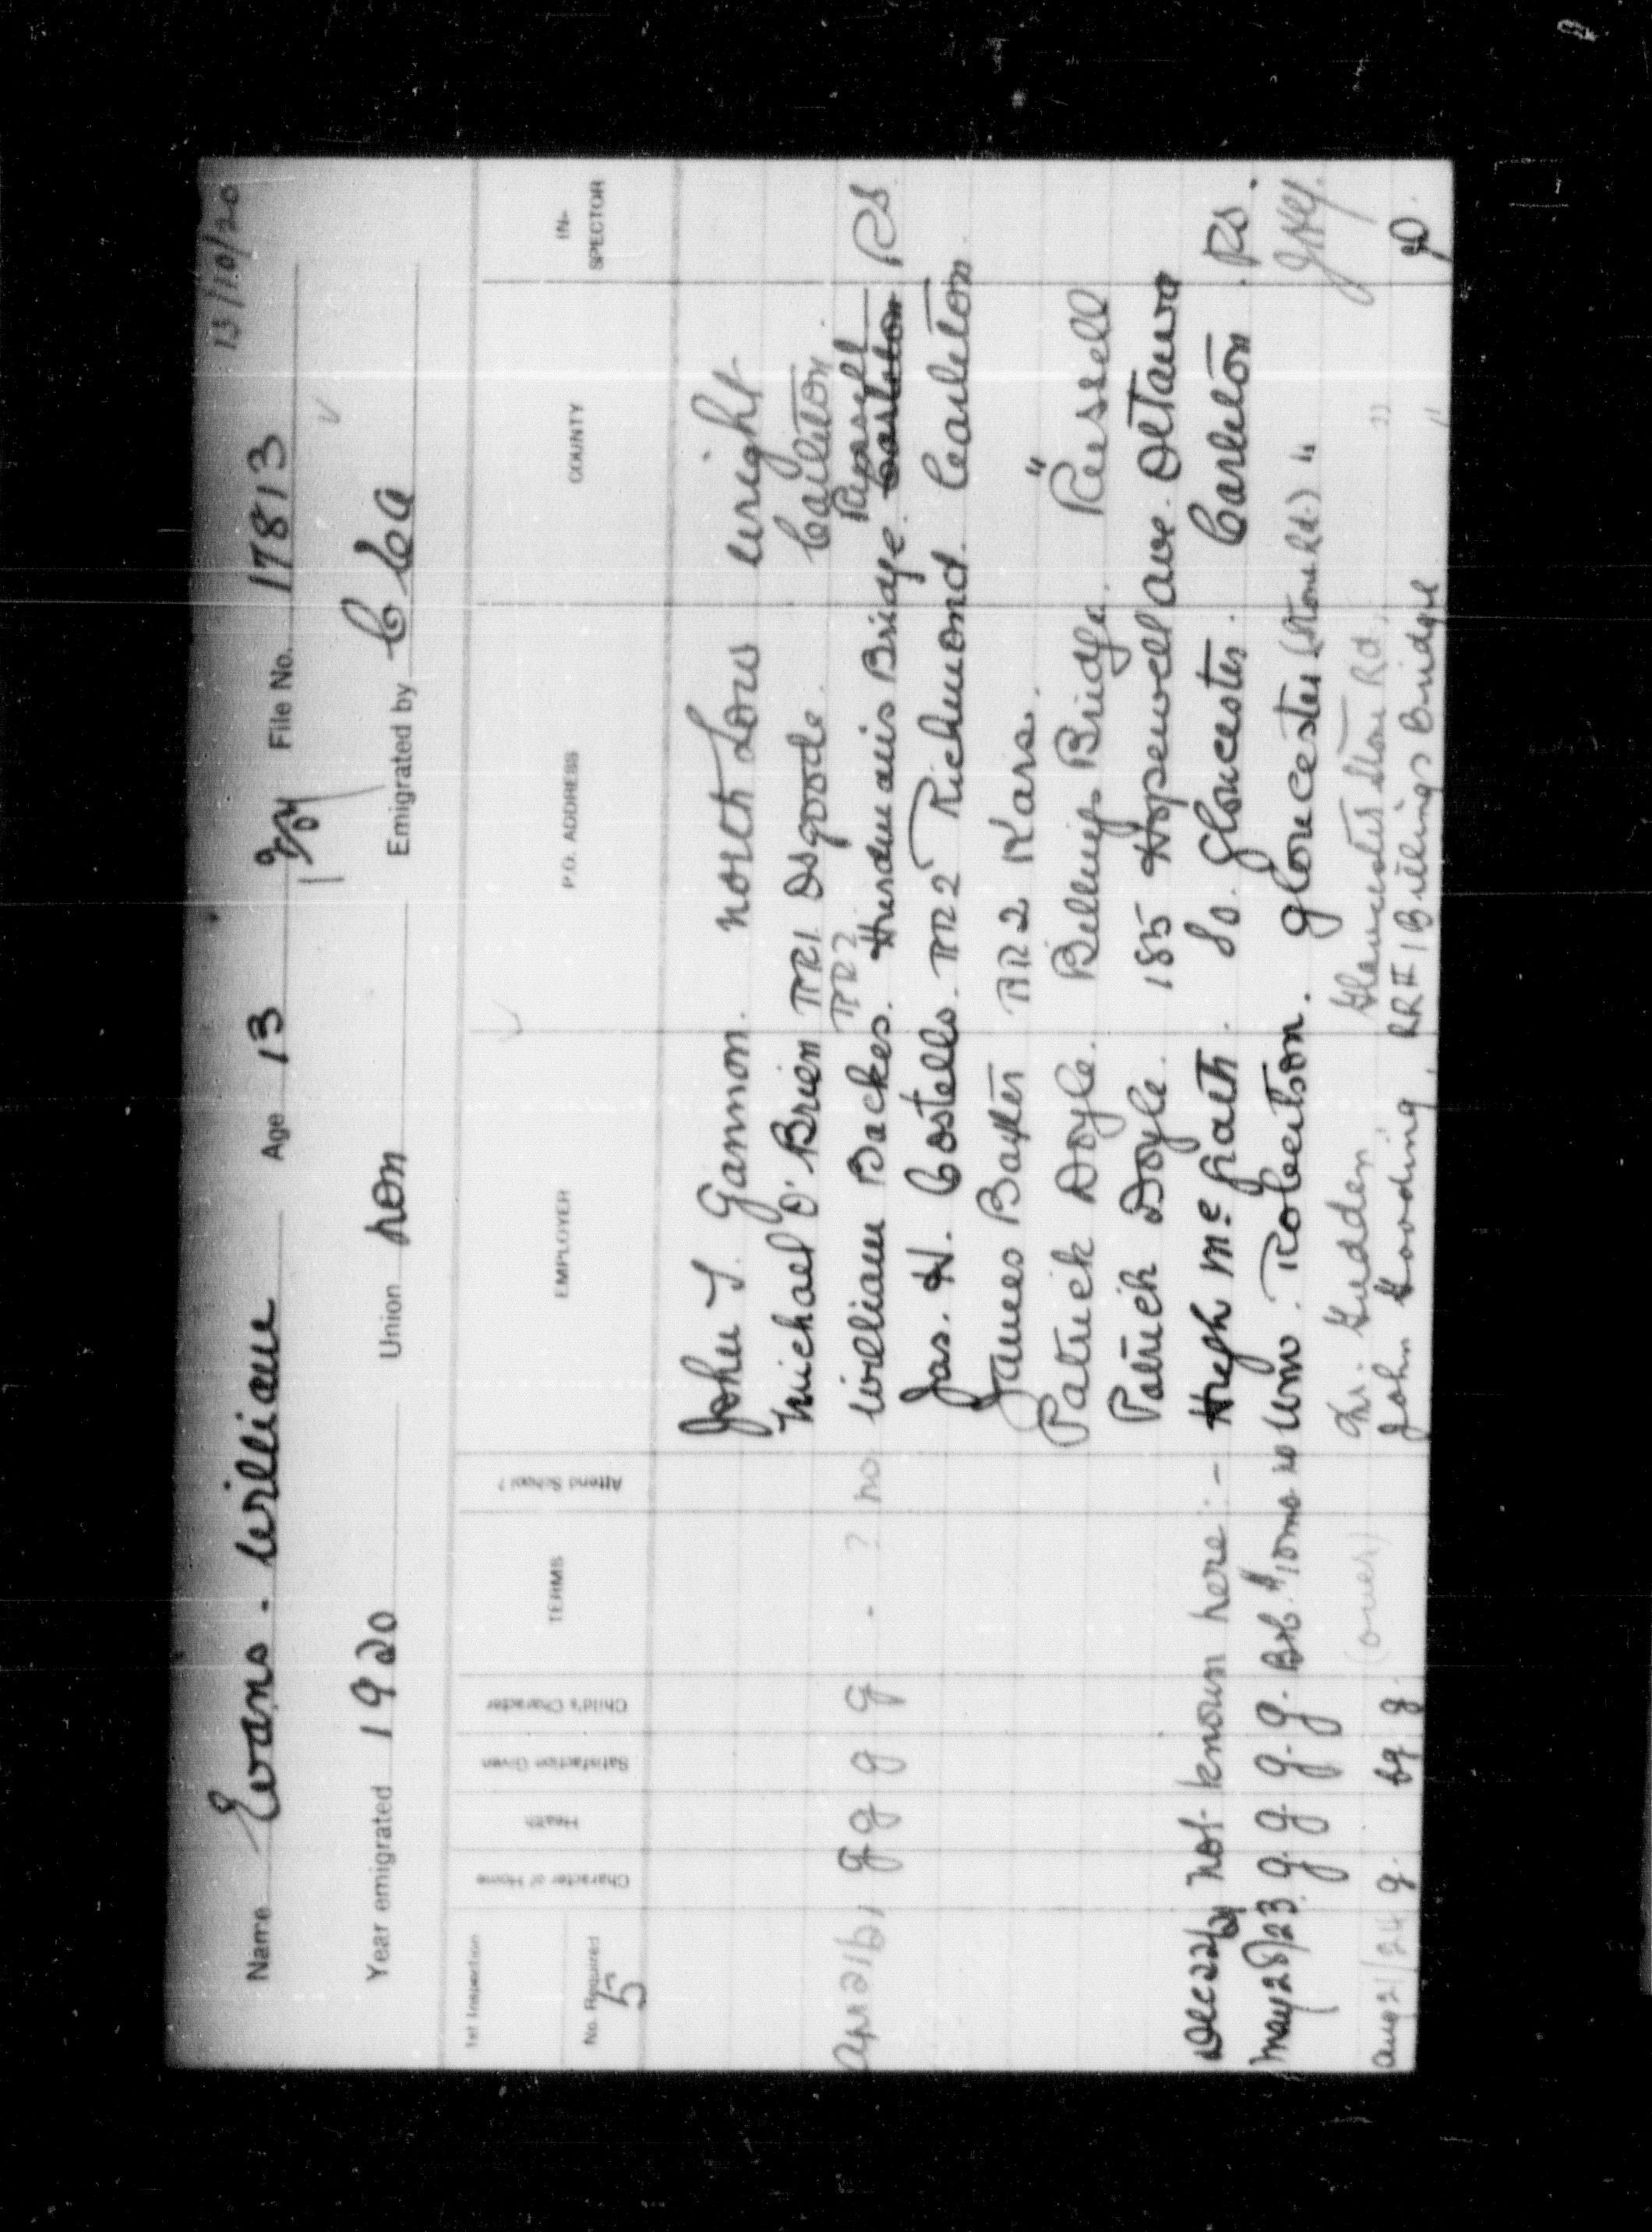 13/10/20
Name Evans - William Age 13 File No. 17813
Year emigrated 1920 Union non Emigrated by C Cea
1st Inspection
No. Required 5
Character of Home
Health
Satisfaction Given
Child's Character
TERMS
Attend School?
EMPLOYER
P.O. ADDRESS
COUNTY
IN-SPECTOR
John J. Gannon. North Low Wright
Michael O'Brien RR1 Osgoode. Carleton.
RR2 Russell
Apr 21/21 g g g g - ? no William Backes. Hurdman's Bridge. Carleton RS.
Jas. H. Costello. RR2 Richmond. Carleton.
James Baxter RR2 Kars. "
Patrick Doyle. Billings Bridge. Russell
Patrick Doyle. 185 Hopewell Ave. Ottawa
Dec 22/21 Not known here :- Hugh McGrath. So. Gloucester. Carleton. RS.
May 28/23 g. g. g. g. B.L. $10 mo no Wm. Robertson. Gloucester (Stone Rd.) "
(over) Gladden Gloucester Stone Rd. "
Aug 21/24 g. g. John Gooding, RR#1 Billings Bridge "